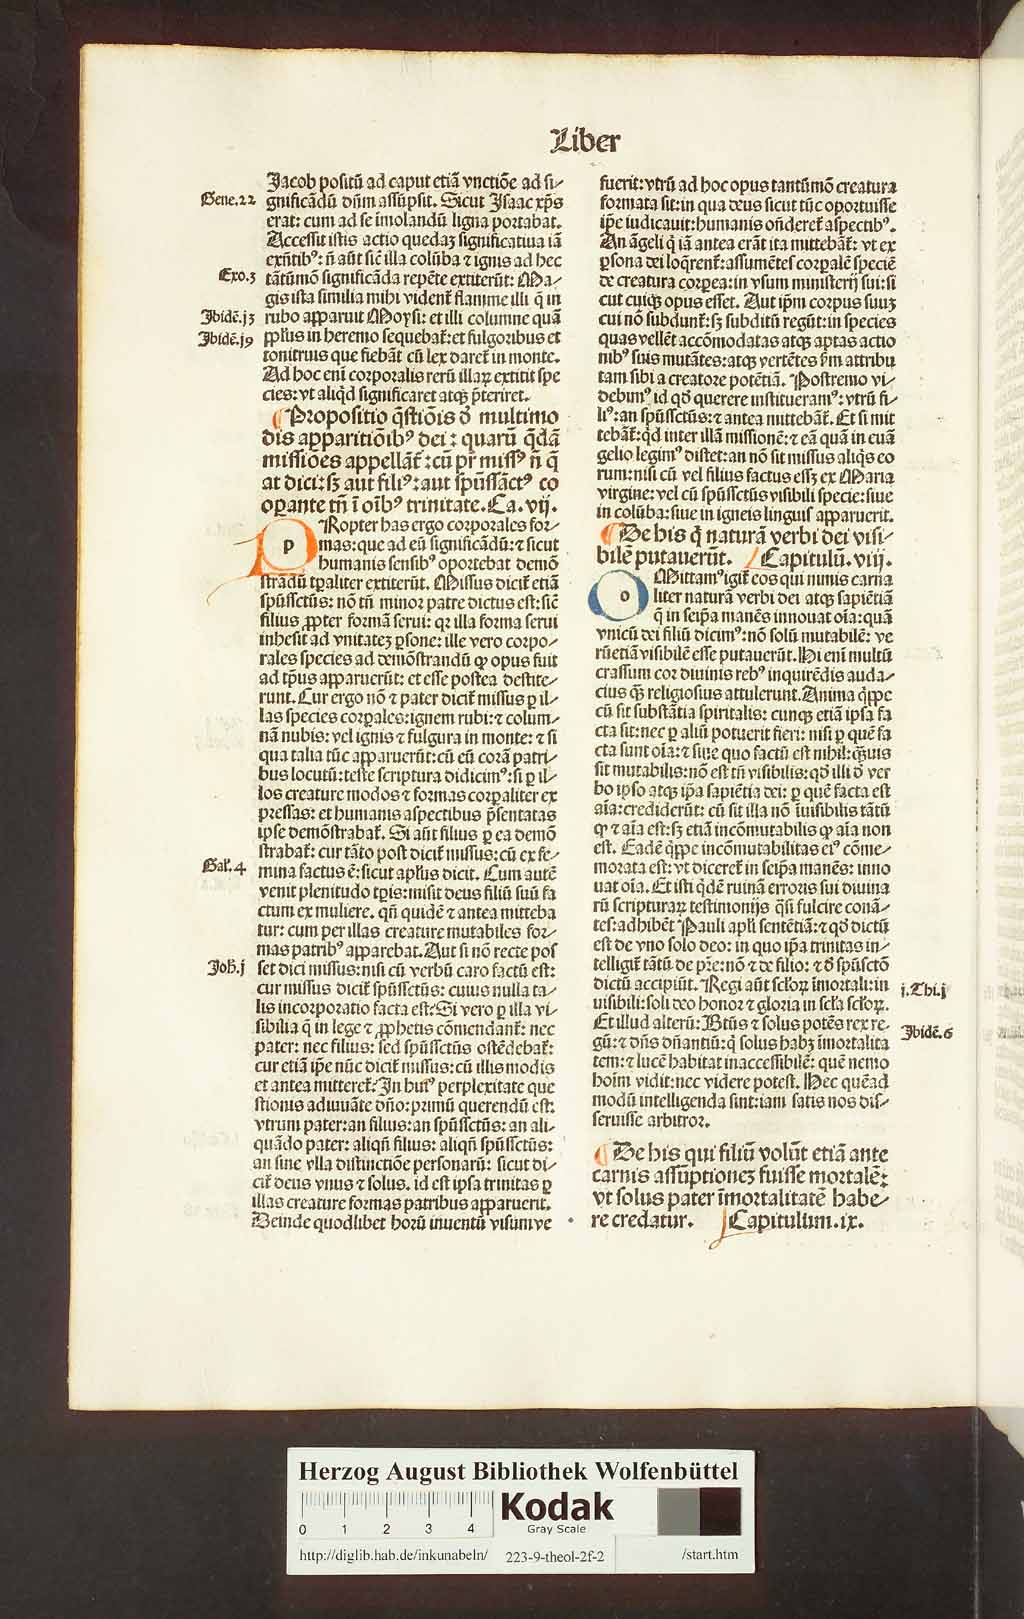 Liber
Jacob positū ad caput etiā vnctiōe ad si⸗
Gene.22
gnificādū dn̄m assūpsit. Sicut Isaac xp̄s
erat: cum ad se īmolandū ligna portabat.
Accessit istis actio quedaꝫ significatiua iā
exn̄tibꝰ: n̄ aūt sic̄ illa colūba ⁊ ignis ad hec
Exo.3
tātūmō significāda repēte extiterūt: Ma⸗
gis ista similia mihi vident̄ flamme illi q̄ in
Ibidē.j3
rubo apparuit Moysi: et illi columne quā
Ibidē.j9
pp̄lus in heremo sequebat̄: et fulgoribus et
tonitruis que fiebāt cū lex daret̄ in monte.
Ad hoc eni corporalis rerū illaꝝ extitit spe
cies: vt aliqd̄ significaret atqꝫ p̄teriret.
Propositio q̄stiōis ō multimo
dis apparitiōibꝰ dei: quarū q̄dā
missiōes appellāt̄: cū pr̄ missꝰ n̄ q̄
at dici: sꝫ aut filiꝰ: aut spūssāctꝰ co
oꝑante tn̄ ī oībꝰ trinitate. Ca. vij.
PRopter has ergo corporales for⸗
mas: que ad eū significādū: ⁊ sicut
humanis sensibꝰ oportebat demō
strādū tꝑaliter extiterūt. Missus dicit̄ etiā
spūssctūs: nō tn̄ minor patre dictus est: sic̄
filius ꝓpter formā serui: qꝛ illa forma serui
inhesit ad vnitateꝫ ꝑsone: ille vero corpo⸗
rales species ad demōstrandū qꝫ opus fuit
ad tp̄us apparuerūt: et esse postea destite⸗
runt. Cur ergo nō ⁊ pater dicit̄ missus ꝑ il⸗
las species corꝑales: ignem rubi: ⁊ colum⸗
nā nubis: vel ignis ⁊ fulgura in monte: ⁊ si
qua talia tūc apparuerūt: cū eū corā patri⸗
bus locutū: teste scriptura didicimꝰ: si ꝑ il⸗
los creature modos ⁊ formas corꝑaliter ex
pressas: et humanis aspectibus p̄sentatas
ipse demōstrabat̄. Si aūt filius ꝑ ea demō
strabat̄: cur tāto post dicit̄ missus: cū ex fe⸗
Gal̄.4
mina factus ē: sicut apl̄us dicit. Cum autē
venit plenitudo tꝑis: misit deus filiū suū fa
ctum ex muliere. qn̄ quidē ⁊ antea mitteba
tur: cum per illas creature mutabiles for⸗
mas patribꝰ apparebat. Aut si nō recte pos
Joh̄.j
set dici missus: nisi cū verbū caro factū est:
cur missus dicit̄ spūssctūs: cuius nulla ta⸗
lis incorporatio facta est: Si vero ꝑ illa vi⸗
sibilia q̄ in lege ⁊ ꝓphetis cōmendant̄: nec
pater: nec filius: sed spūssctūs ostēdebat̄:
cur etiā ip̄e nūc dicit̄ missus: cū illis modis
et antea mitteret̄: In huiꝰ perplexitate que
stionis adiuuāte dn̄o: primū querendū est:
vtrum pater: an filius: an spūssctūs: an ali⸗
quādo pater: aliqn̄ filius: aliqn̄ spūssctūs:
an sine vlla distinctiōe personarū: sicut di⸗
cit̄ deus vnus ⁊ solus. id est ipsa trinitas ꝑ
illas creature formas patribus apparuerit.
Deinde quodlibet horū inuentū visum ve
fuerit: vtrū ad hoc opus tantūmō creatura
formata sit: in qua deus sicut tūc oportuisse
ip̄e iudicauit: humanis on̄deret̄ aspectibꝰ.
An āgeli q̄ iā antea erāt ita mittebāt̄: vt ex
ꝑsona dei loq̄rent̄: assumētes corꝑalē speciē
de creatura corꝑea: in vsum ministerij sui: si
cut cuiqꝫ opus esset. Aut ip̄m corpus suuꝫ
cui nō subdunt̄: sꝫ subditū regūt: in species
quas vellēt accōmodatas atqꝫ aptas actio
nibꝰ suis mutātes: atqꝫ vertētes ẜm attribu
tam sibi a creatore potētiā. Postremo vi⸗
debimꝰ id qd̄ querere institueramꝰ: vtrū fi⸗
liꝰ: an spūssctūs: ⁊ antea mittebāt̄. Et si mit
tebāt̄: qd̄ inter illā missionē: ⁊ eā quā in euā
gelio legimꝰ distet: an nō sit missus aliq̄s eo
rum: nisi cū vel filius factus esſꝫ ex Maria
virgine: vel cū spūssctūs visibili specie: siue
in colūba: siue in igneis linguis apparuerit.
De his q̄ naturā verbi dei visi⸗
bilē putauerūt. Capitulū. viij.
OMittamꝰ igit̄ eos qui nimis carna
liter naturā verbi dei atqꝫ sapiētiā
q̄ in seip̄a manēs innouat oīa: quā
vnicū dei filiū dicimꝰ: nō solū mutabilē: ve
rūetiā visibilē esse putauerūt. Hi enī multū
crassum cor diuinis rebꝰ inquirēdis auda⸗
cius qꝫ religiosius attulerunt. Anima q̄ppe
cū sit substātia spiritalis: cunqꝫ etiā ipsa fa
cta sit: nec ꝑ aliū potuerit fieri: nisi ꝑ quē fa
cta sunt oīa: ⁊ sine quo factū est nihil: q̄uis
sit mutabilis: nō est tn̄ visibilis: qd̄ illi ō ver
bo ipso atqꝫ ip̄a sapiētia dei: ꝑ quē facta est
aīa: crediderūt: cū sit illa nō īuisibilis tātū
qꝫ ⁊ aīa est: sꝫ etiā incōmutabilis qꝫ aīa non
est. Eadē q̄ppe incōmutabilitas eiꝰ cōme⸗
morata est: vt diceret̄ in seip̄a manēs: inno
uat oīa. Et isti q̄dē ruinā erroris sui diuina
rū scripturaꝝ testimonijs q̄si fulcire conā⸗
tes: adhibēt Pauli apl̄i sentētiā: ⁊ qd̄ dictū
est de vno solo deo: in quo ip̄a trinitas in⸗
telligit̄ tātū de pr̄e: nō ⁊ de filio: ⁊ ō spūsctō
dictū accipiūt. Regi aūt scl̄oꝝ īmortali: in
j.Thi.j
uisibili: soli deo honor ⁊ gloria in scl̄a scl̄oꝝ.
Et illud alterū: Btūs ⁊ solus potēs rex re⸗
Ibidē.6
gū: ⁊ dn̄s dn̄antiū: q̄ solus habꝫ īmortalita
tem: ⁊ lucē habitat inaccessibilē: quē nemo
hoīm vidit: nec videre potest. Hec quēad
modū intelligenda sint: iam satis nos dis⸗
seruisse arbitror.
De his qui filiū volūt etiā ante
carnis assūptioneꝫ fuisse mortalē:
vt solus pater īmortalitatē habe⸗
re credatur. Capitulum. ix.
Herzog August Bibliothek Wolfenbüttel
0 1 2 3 4
Kodak
Gray Scale
http://diglib.hab.de/inkunabeln/ 223-9-theol-2f-2 /start.htm